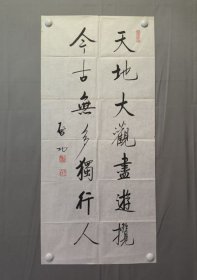 天地大觀盡遊攬
今古無多獨行人
啟功